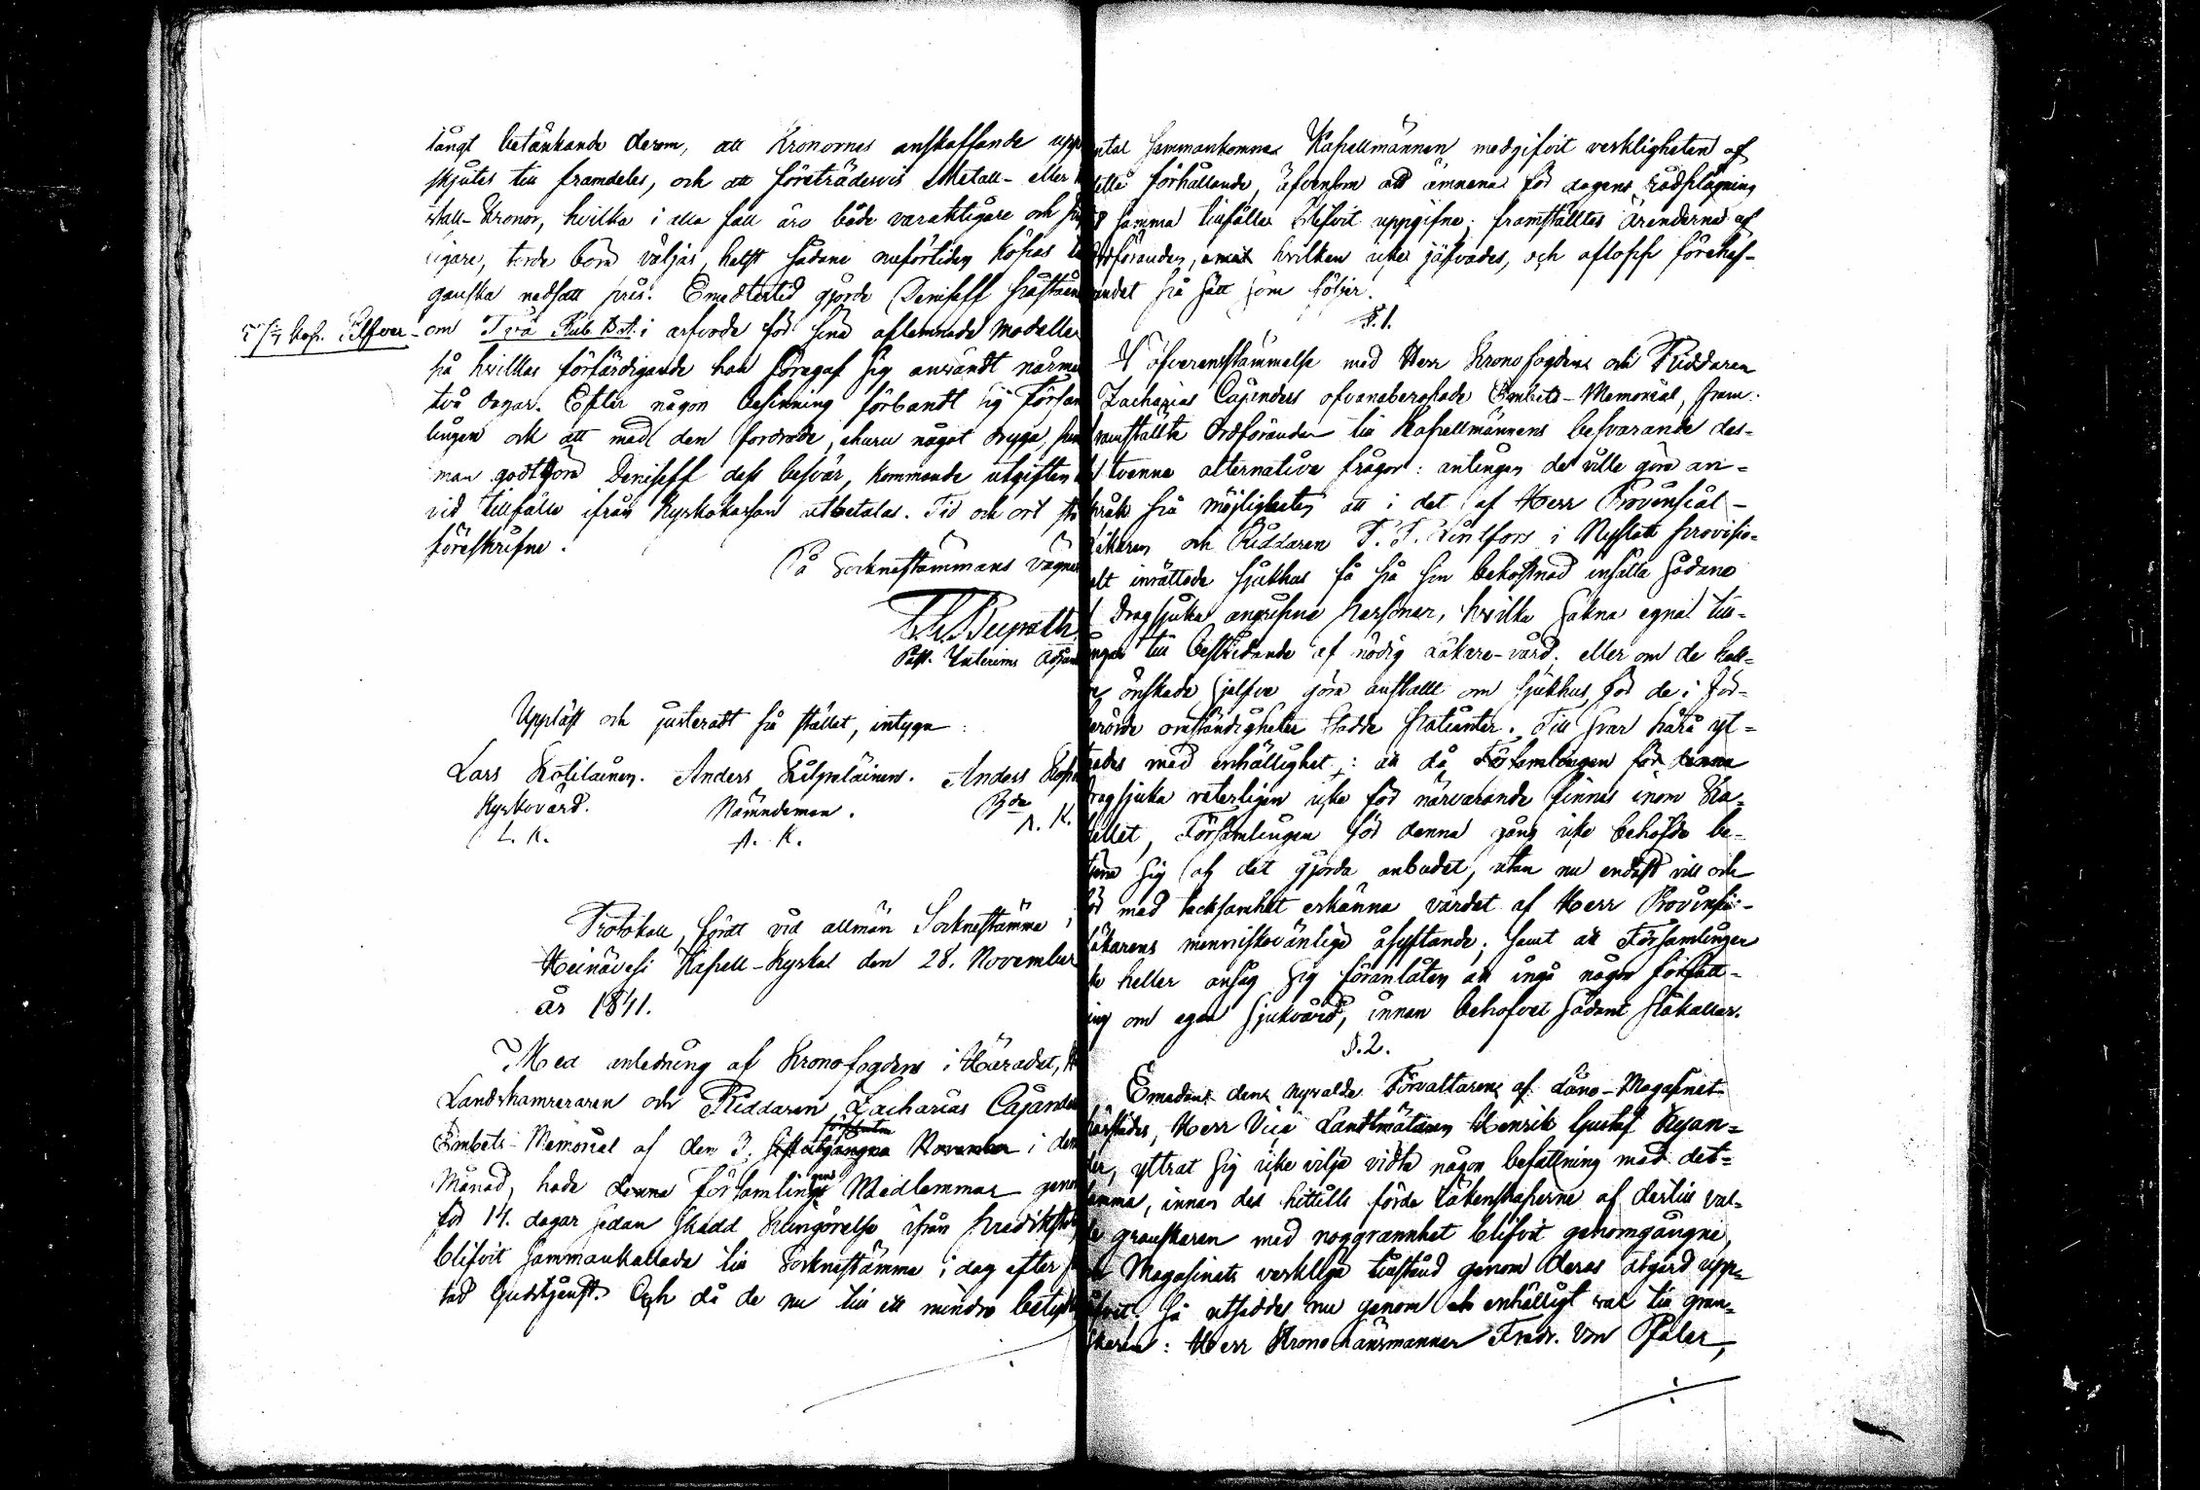 långt betänkande derom, att Kronornes anskaffande upp
skjutes till framdeles, och att företrädesvis Metall- eller
stall-Kronor, hvilka i alla fall äro både varaktigare och
ligare, torde böra väljas, helst sådane nuförtiden köpas
ganska nedsatt pris. Emedlertid gjorde Deniseff påståen
om Två Rub. B:A: i arfvode för sina aflemnade modeller
Kop. Silfver
på hvilkas förfärdigande han föregaf sig användt närma
två dagar. Efter någon besinning förbandt sig Församlingen
lingen ock att med den fordrade, ehuru något dryga, sum
man godtgöra Deniseff dess besvär, kommande utgiften
vid tillfälle ifrån Kyrkokassan utbetalas. Tid och ort
föreskrifne.
På Socknestämmans vägnar
Past. Interims Adjunct
Uppläst och justeradt på stället, intyga:
Lars Kotilainen. Anders Kilpeläinen. Anders
Kyrkovärd. Nämndeman. B:de
L. K. A. K. A. K.
Protokoll, fördt vid allmän Socknestämma i
Heinävesi Kapell-Kyrka den 28. November
år 1841.
Med anledning af Kronofogdens i Häradet,
Landskamreraren och Riddaren Zacharias Cajanders
Embets-Memorial af den 3. November i den
Månad, hade denna Församlings Medlemmar genom
för 14. dagar sedan skedd kungörelse ifrån Predikstolen
blifvit sammankallade till Socknestämma i dag efter
tad Gudstjenst. Och då de nu till ett mindre betyd
antal sammankomne Kapellmännen medgifvit verkligheten af
detta förhållande, äfvensom att ämnena för dagens rådplägning
samma tillfälle blifvit uppgifne; framställtes Ärenderna af
Ordföranden, emot hvilken icke jäfvades, och aflopp förehaf-
vandet på sätt som följer.
§.1.
I öfverensstämmelse med Herr Kronofogdens och Riddaren
Zacharias Cajanders ofvanaberopade Embets-Memorial, fram-
framställte Ordföranden till Kapellmännens besvarande des-
tvenne alternativa frågor: antingen de ville göra an-
språk på möjligheten att i det af Herr Provinsial-
läkaren och Riddaren i Nyslott proviso-
elt inrättade sjukhus få på sin bekostnad insätta sådane
Dragsjuka angripne personer, hvilka sakna egna till-
gångar till bestridande af nödig Läkare-vård; eller om de hell-
re önskade sjelfve göra anstallt om sjukhus för de i för-
berörde omständigheter stadde patienter. Till svar härå yt-
trades med enhällighet: att då Församlingen för denna
Dragsjuka veterligen icke för närvarande finnes inom Ka-
pellet, Församlingen för denna gång icke behöfde be-
tjena sig af det gjorda anbudet, utan nu endast vill och
bör med tacksamhet erkänna värdet af Herr Provinsial-
läkarens menniskovänliga åsyftande; samt att Församlingen
icke heller ansåg sig föranlåten att ingå någon författ-
ning om egen sjukvård, innan behofvet sådant påkallar.
§.2.
Emedan den nyvalde Förvaltaren af Låne-Magasinet
härstädes, Herr Vice Landtmätaren Henrik Gustaf Argan-
der, yttrat sig icke vilja vidta någon befattning med det-
samma, innan des hittills förda räkenskaperne af dertill val-
de granskaren med noggrannhet blifvit genomgångne,
och Magasinets verkliga tillstånd genom deras åtgärd upp-
gifvit. Så utseddes nu genom ett enhälligt val till gran-
skaren: Herr Kronolänsmannen Fredr. von Pfaler,